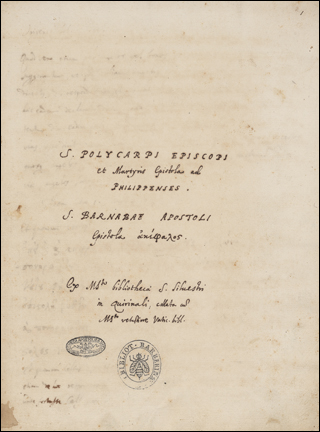 S. POLYCARPI EPISCOPI
et Martyris Epistola ad
PHILIPPENSES.
S. BARNABAE APOSTOLI
Epistola ἀκέφαλος.
Ex Msto bibliothecae S. Silvestri
in Quirinali, collata ad
BIBLIOT. BARBERINA